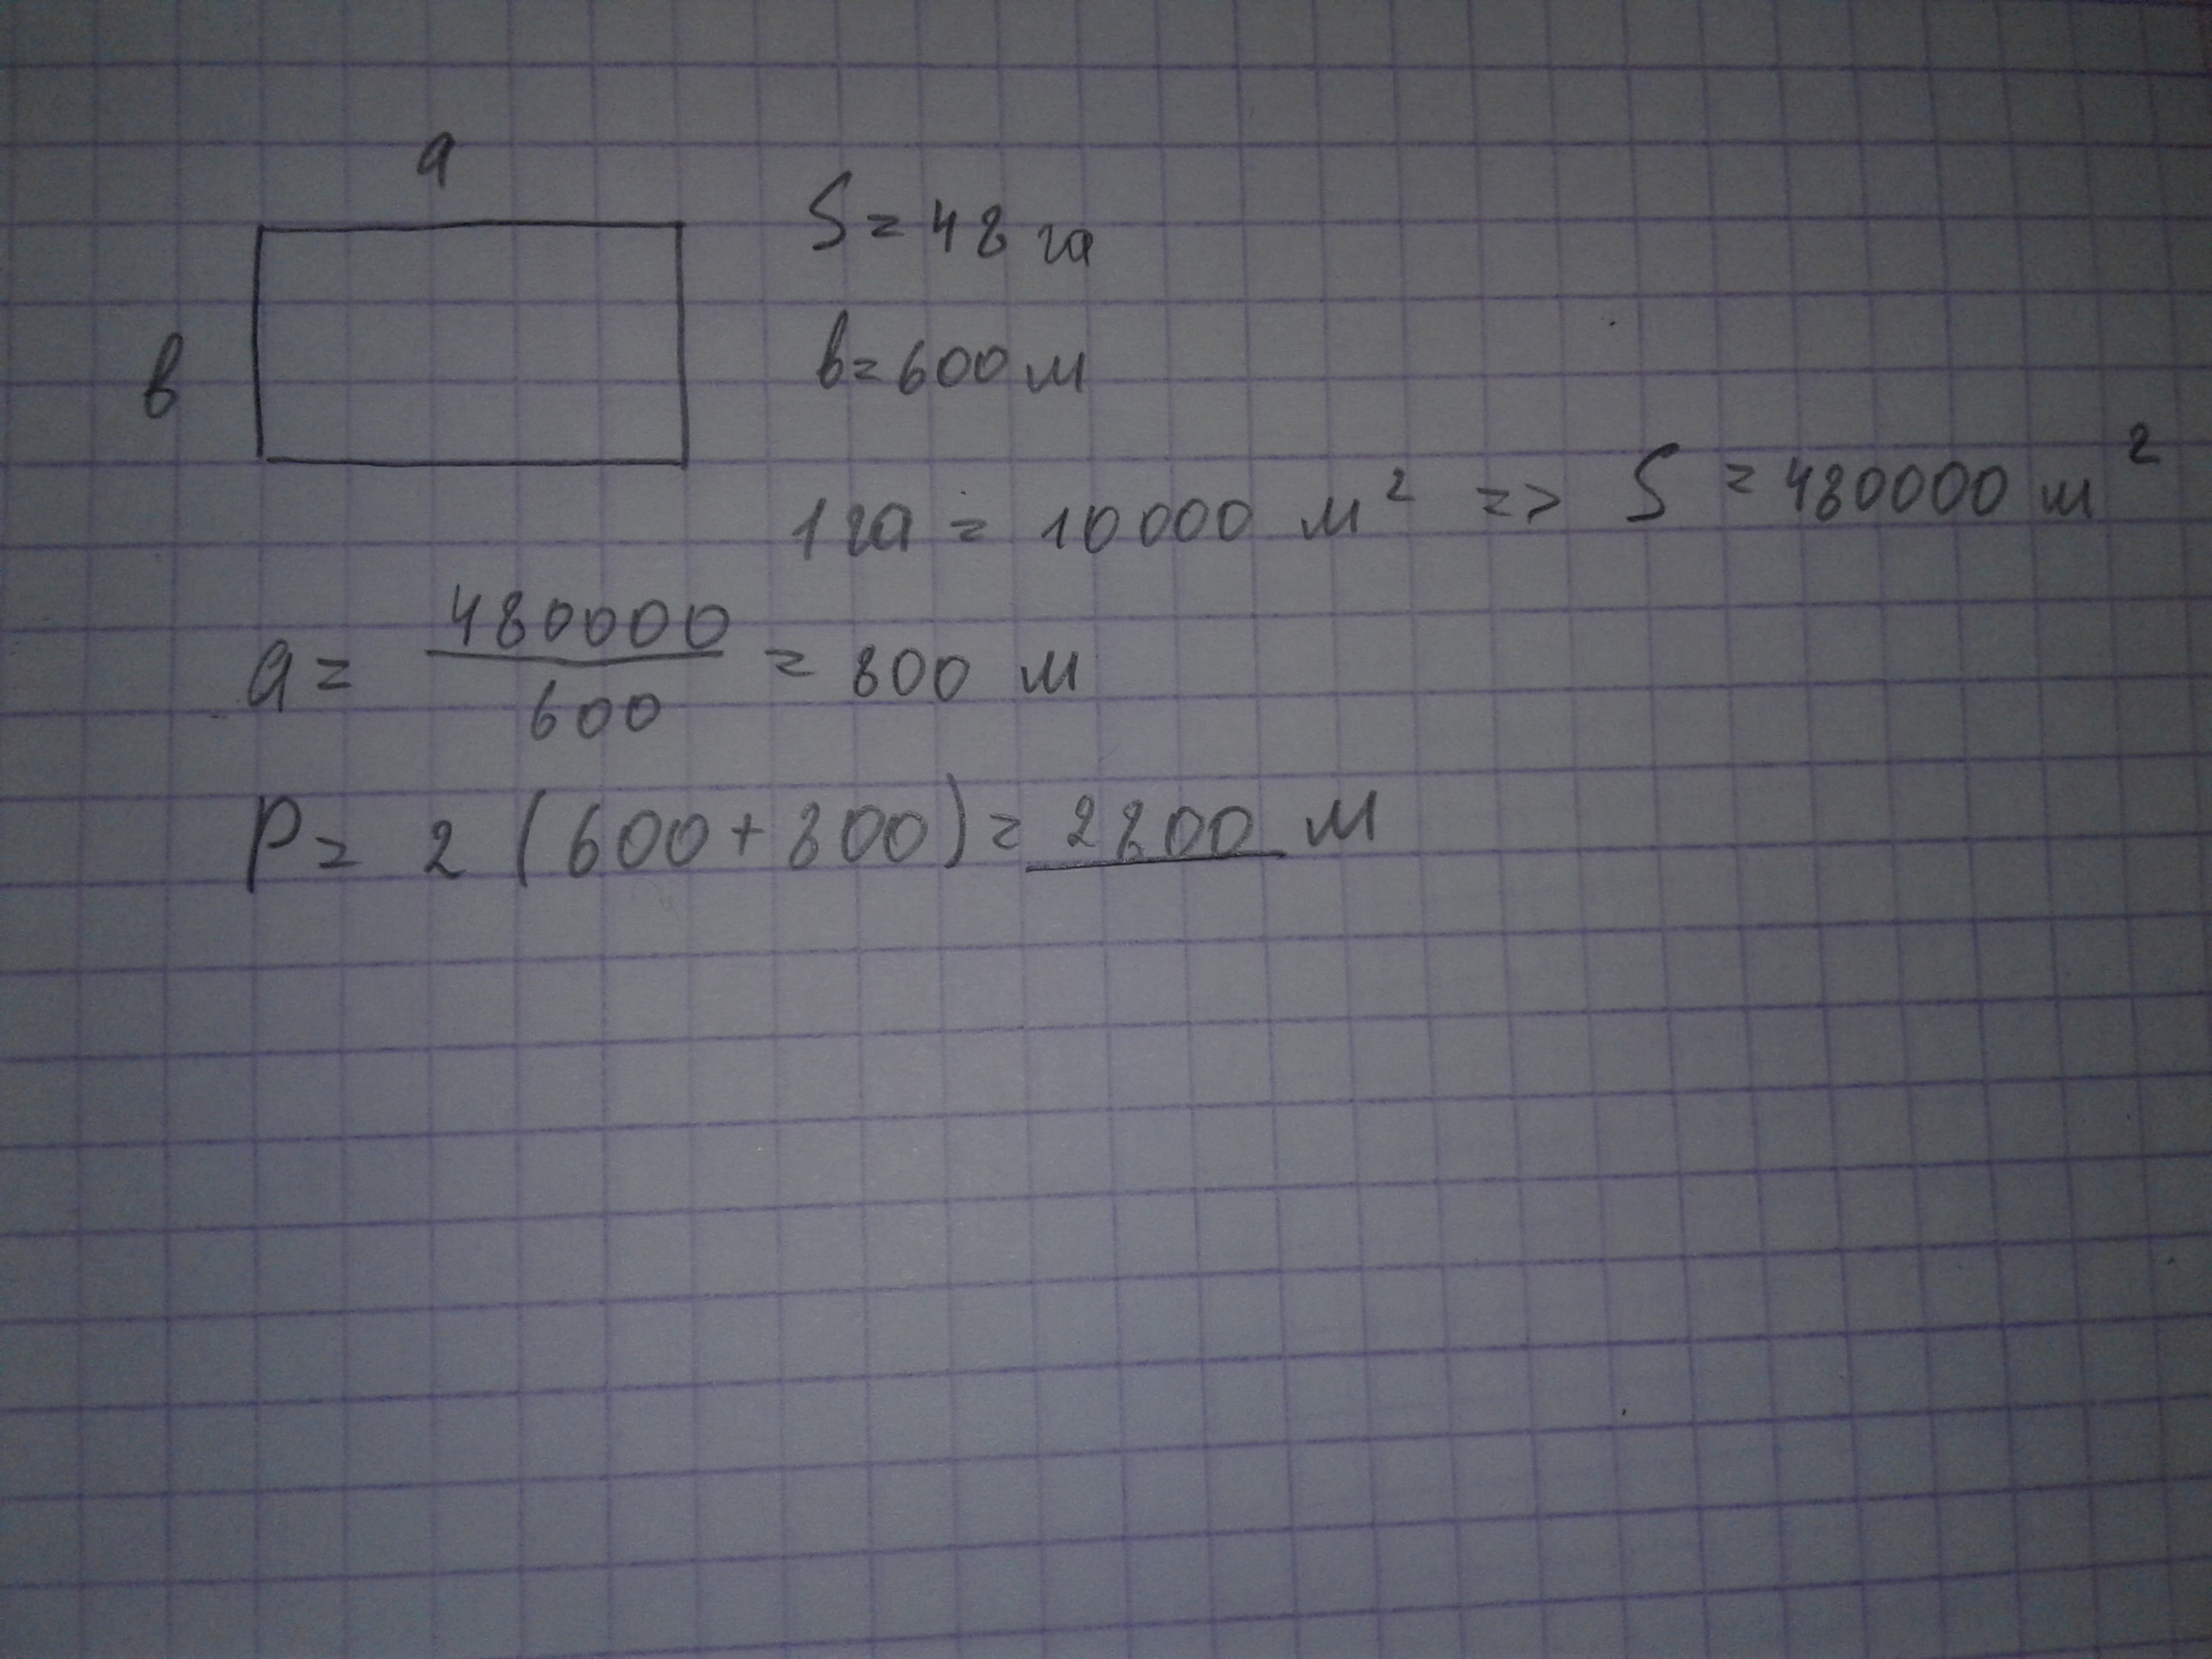 a
S = 48 га
в
в = 600 м
1 га = 10000 м² => S = 480000 м²
a = 480000 / 600 = 800 м
P = 2 (600 + 800) = 2800 м